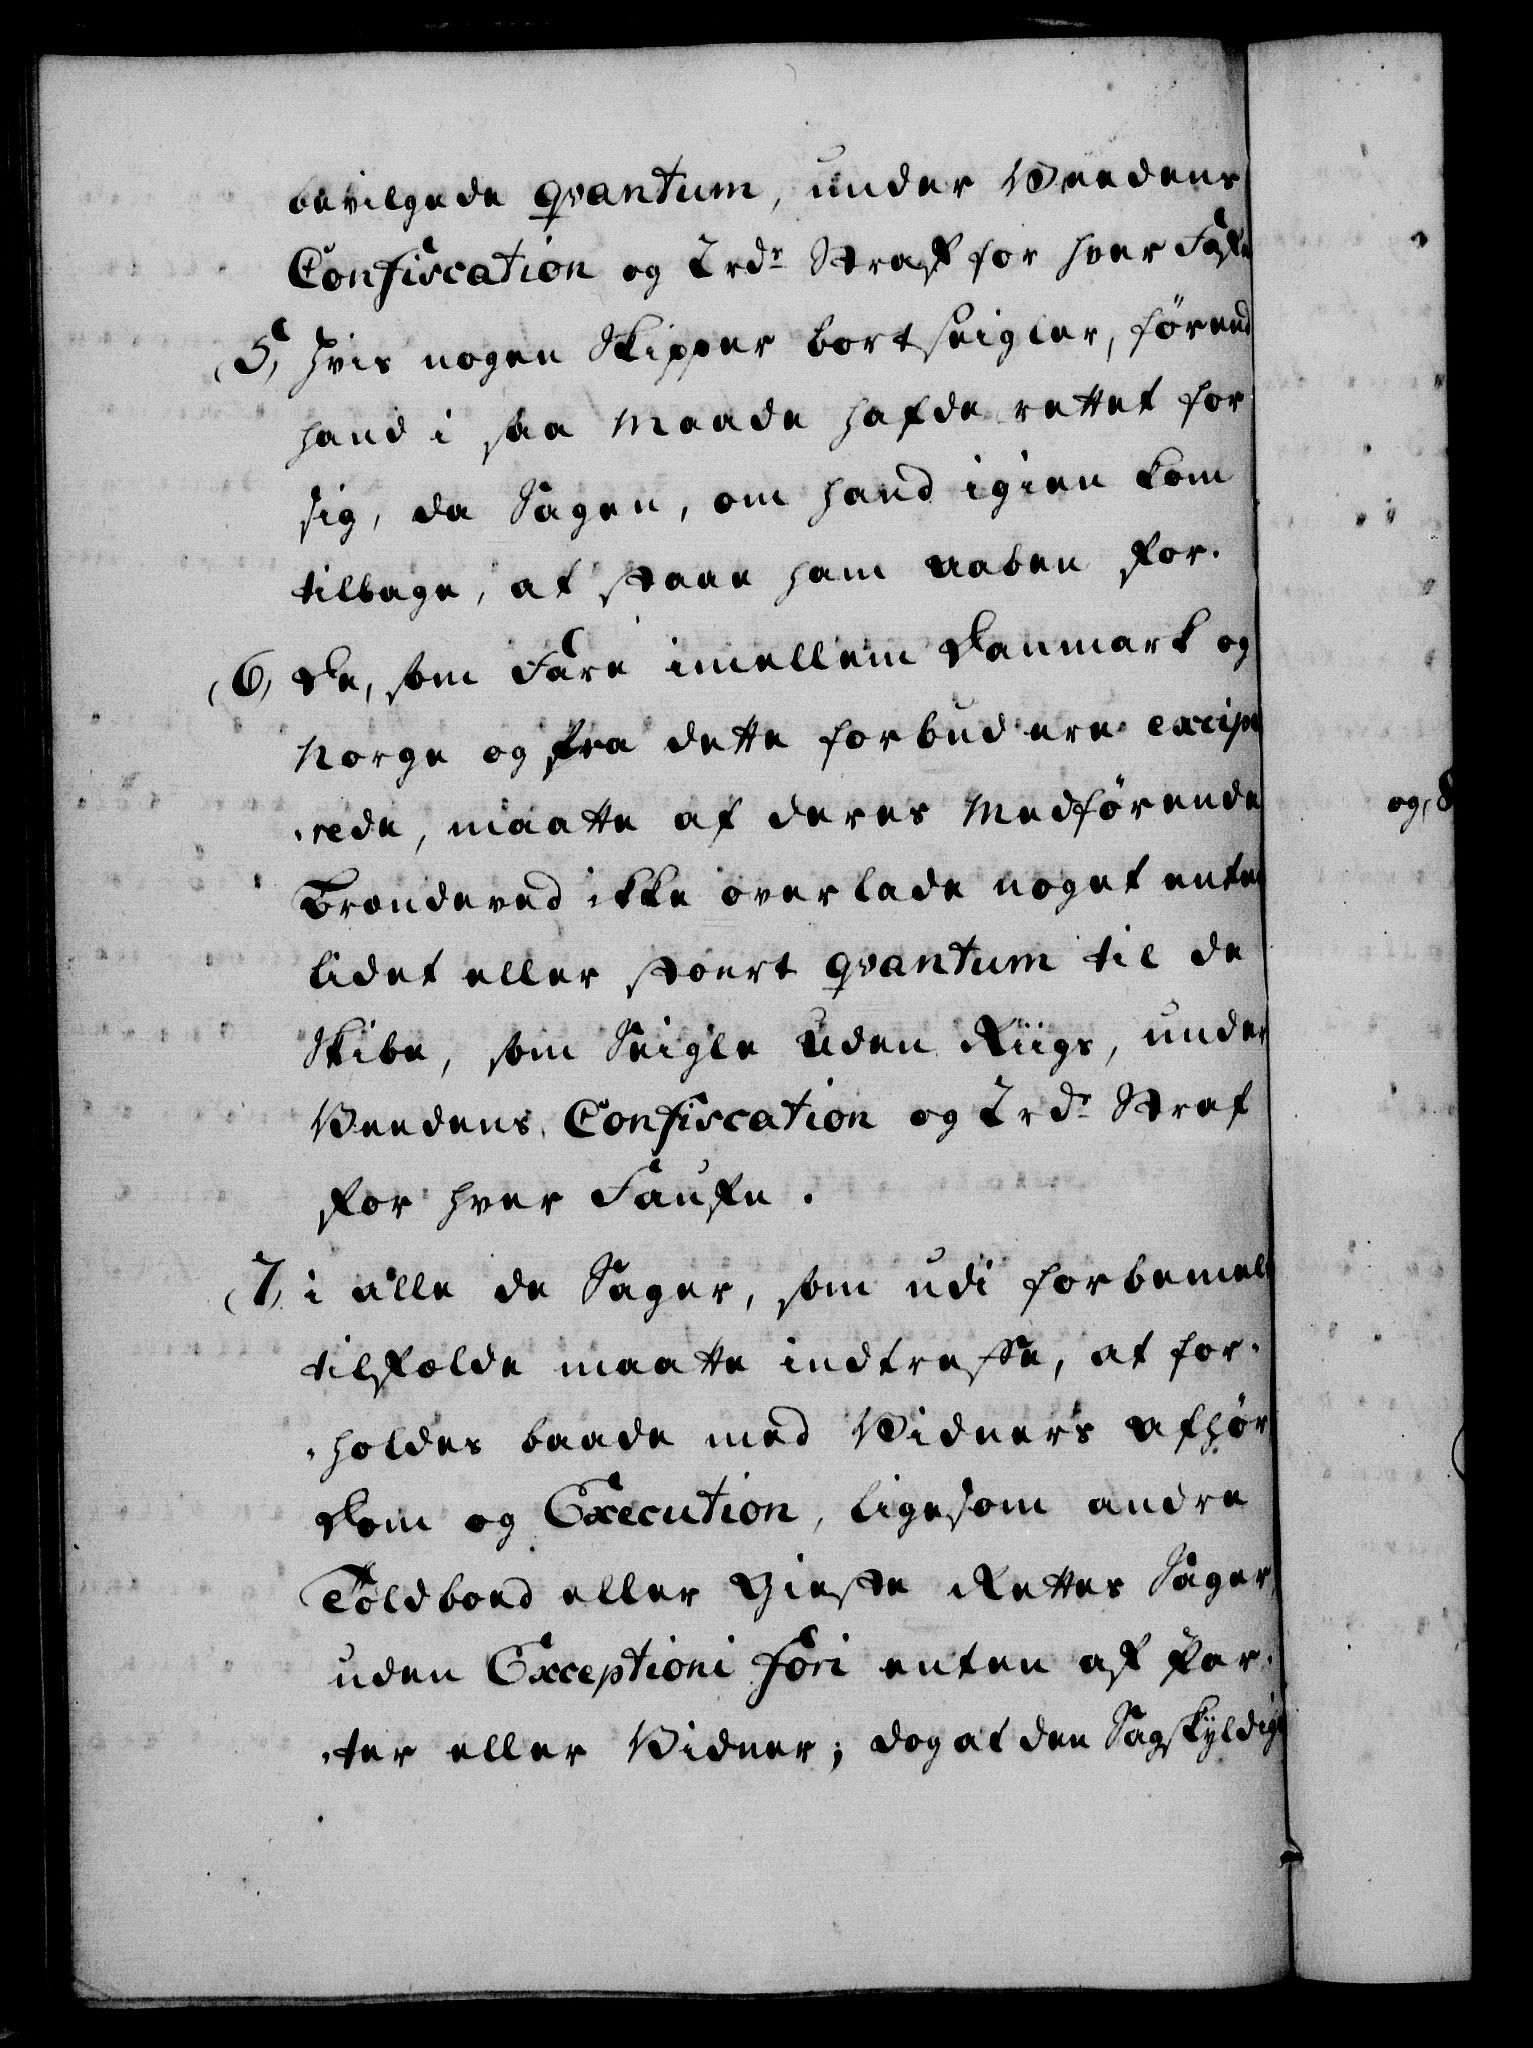 bevilgede qvantum, under Veedens
Confiscation og 2 rdr Straf for hver Fafn
(5, hvis nogen Skipper bortseigler, førend
hand i saa Maade hafde rettet for
sig, da Sagen, om hand igien kom
tilbage, at staae ham aaben for.
(6, De, som Fare imellem Danmark og
Norge og fra dette forbud ere excipe
rede, maatte af deres Medførende
Brændeved ikke overlade noget enten
lidet eller stoert qvantum til de
Skibe, som Seigle uden Riigs, under
Veedens Confiscation og 2 rdr Straf
for hver Faufn.
(7, i alle de Sager, som udi forbemel
tilfælde maatte indtreffe, at for-
-holdes baade med Vidners Afhør
Dom og Execution, ligesom andre
Toldboed eller Gieste Rettes Sager,
uden Exceptioni Fori enten af Par-
-ter eller Vidner; dog at den Sagskyldige
og, 8